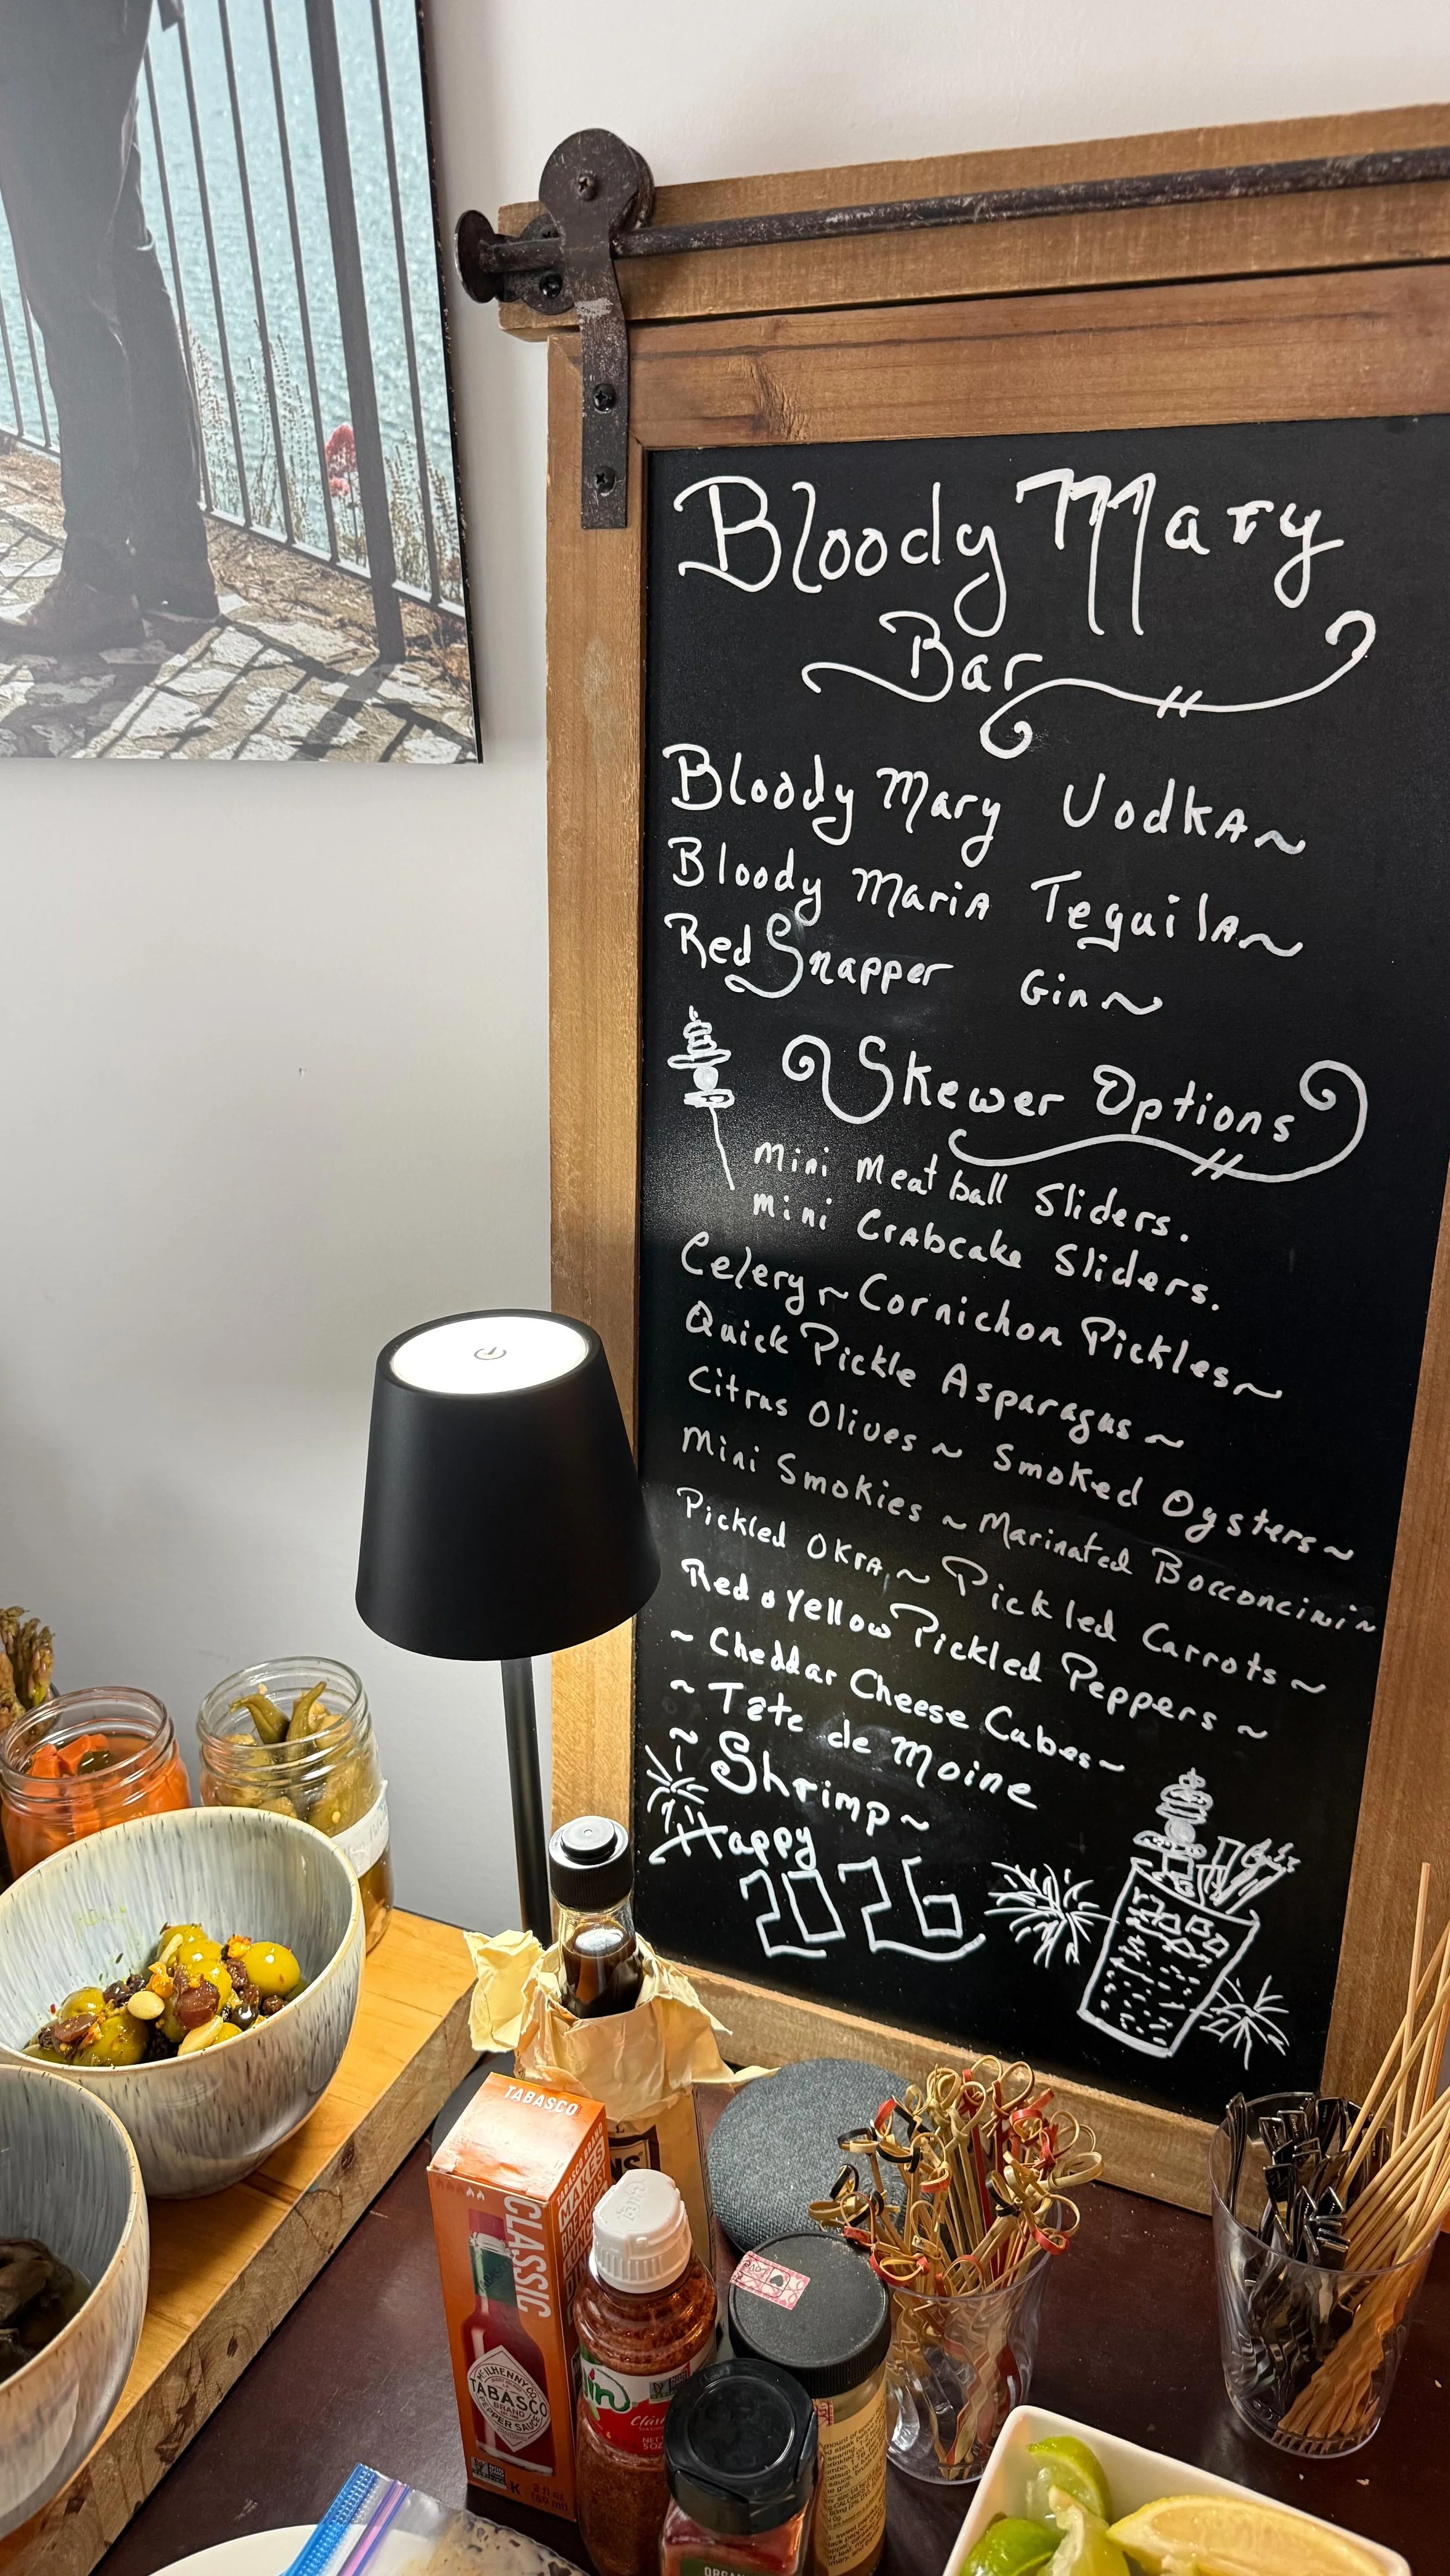 Bloody Mary
Bar
Bloody Mary Vodka~
Bloody Maria Tequila~
Red Snapper Gin~
Skewer Options
Mini Meatball Sliders.
Mini Crabcake Sliders.
Celery ~ Cornichon Pickles~
Quick Pickle Asparagus ~
Citrus Olives ~ Smoked Oysters~
Mini Smokies ~ Marinated Bocconcini~
Pickled Okra, ~ Pickled Carrots~
Red & Yellow Pickled Peppers ~
~ Cheddar Cheese Cubes~
~ Tête de Moine
~ Shrimp~
Happy
2026
TABASCO
CLASSIC
McILHENNY CO.
TABASCO
BRAND
PEPPER SAUCE
K
2 fl oz
(59 ml)
NS
Tajín
Clásico
NET WT
5 OZ
Love
ORGANIC